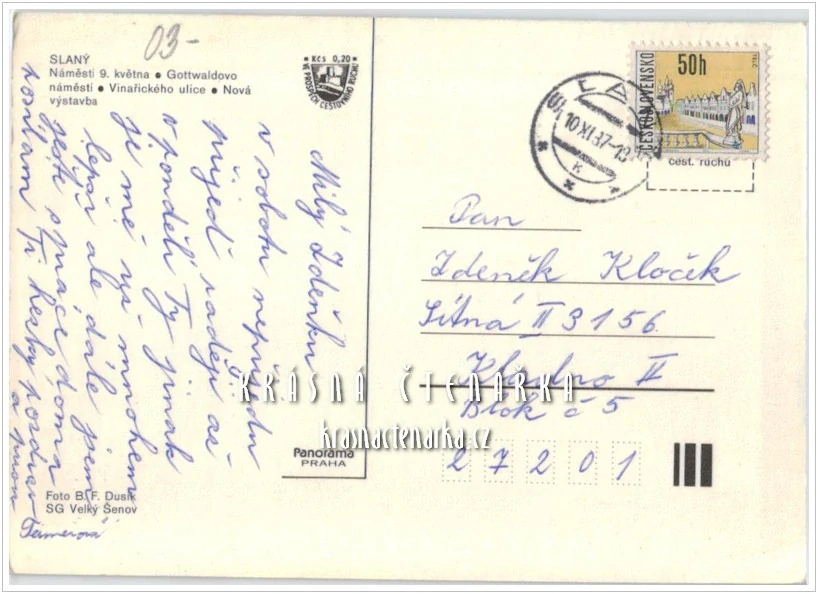 03-
SLANÝ
Náměstí 9. května • Gottwaldovo
náměstí • Vinařického ulice • Nová
výstavba
Kčs 0,20
VE PROSPĚCH CESTOVNÍHO RUCHU
Milý Zdeňku
v sobotu nepřijedu
přijedi raději až
v pondělí Ty jinak
je mě už mnohem
lepší ale dále jsem
ještě s práce doma
posílám Ti hezký pozdrav
a
Foto B. F. Dusík
SG Velký Šenov
Panorama
PRAHA
10.XI.87-19
ČESKOSLOVENSKO
50h
TELČ
cest. ruchu
Pan
Zdeněk Kloček
Sítná II 3156
Kladno II
Blok č 5
27201
KRÁSNÁ ČTENÁŘKA
krasnactenarka.cz